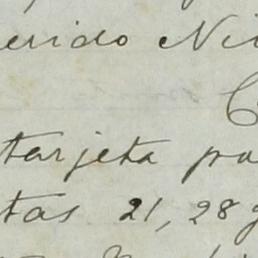 erido Ni
C
tarjeta pa
tas 21, 28 y